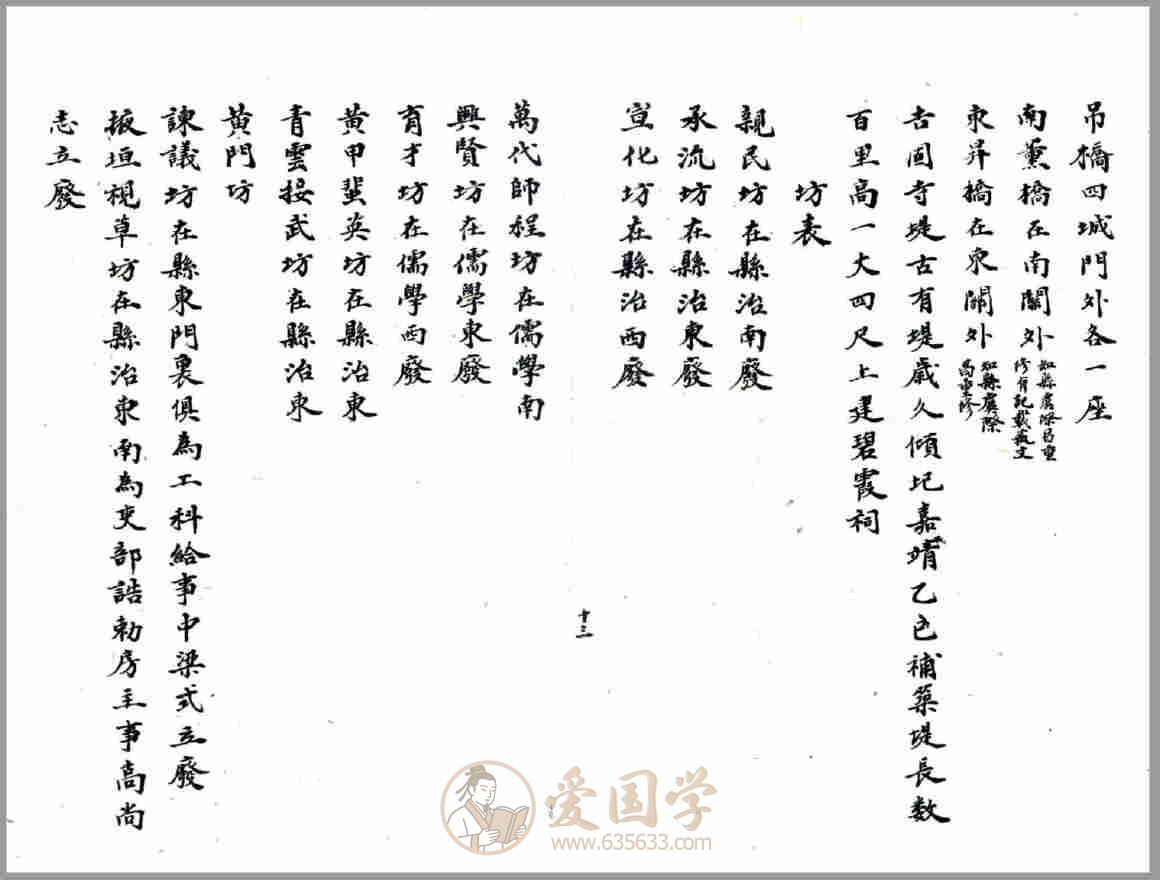 吊橋四城門外各一座
南薰橋在南關外知縣虞際昌重修有記載藝文
東昇橋在東關外知縣虞際昌重修
古固寺堤古有堤歲久傾圮嘉靖乙巳補築堤長数
百里高一丈四尺上建碧霞祠
坊表
親民坊在縣治南廢
承流坊在縣治東廢
宣化坊在縣治西廢
十三
萬代師程坊在儒學南
興賢坊在儒學東廢
育才坊在儒學西廢
黄甲蜚英坊在縣治東
青雲接武坊在縣治東
黄門坊
諫議坊在縣東門裏俱為工科給事中梁式立廢
掖垣視草坊在縣治東南為吏部誥勅房主事高尚
志立廢
爱国学
www.635633.com